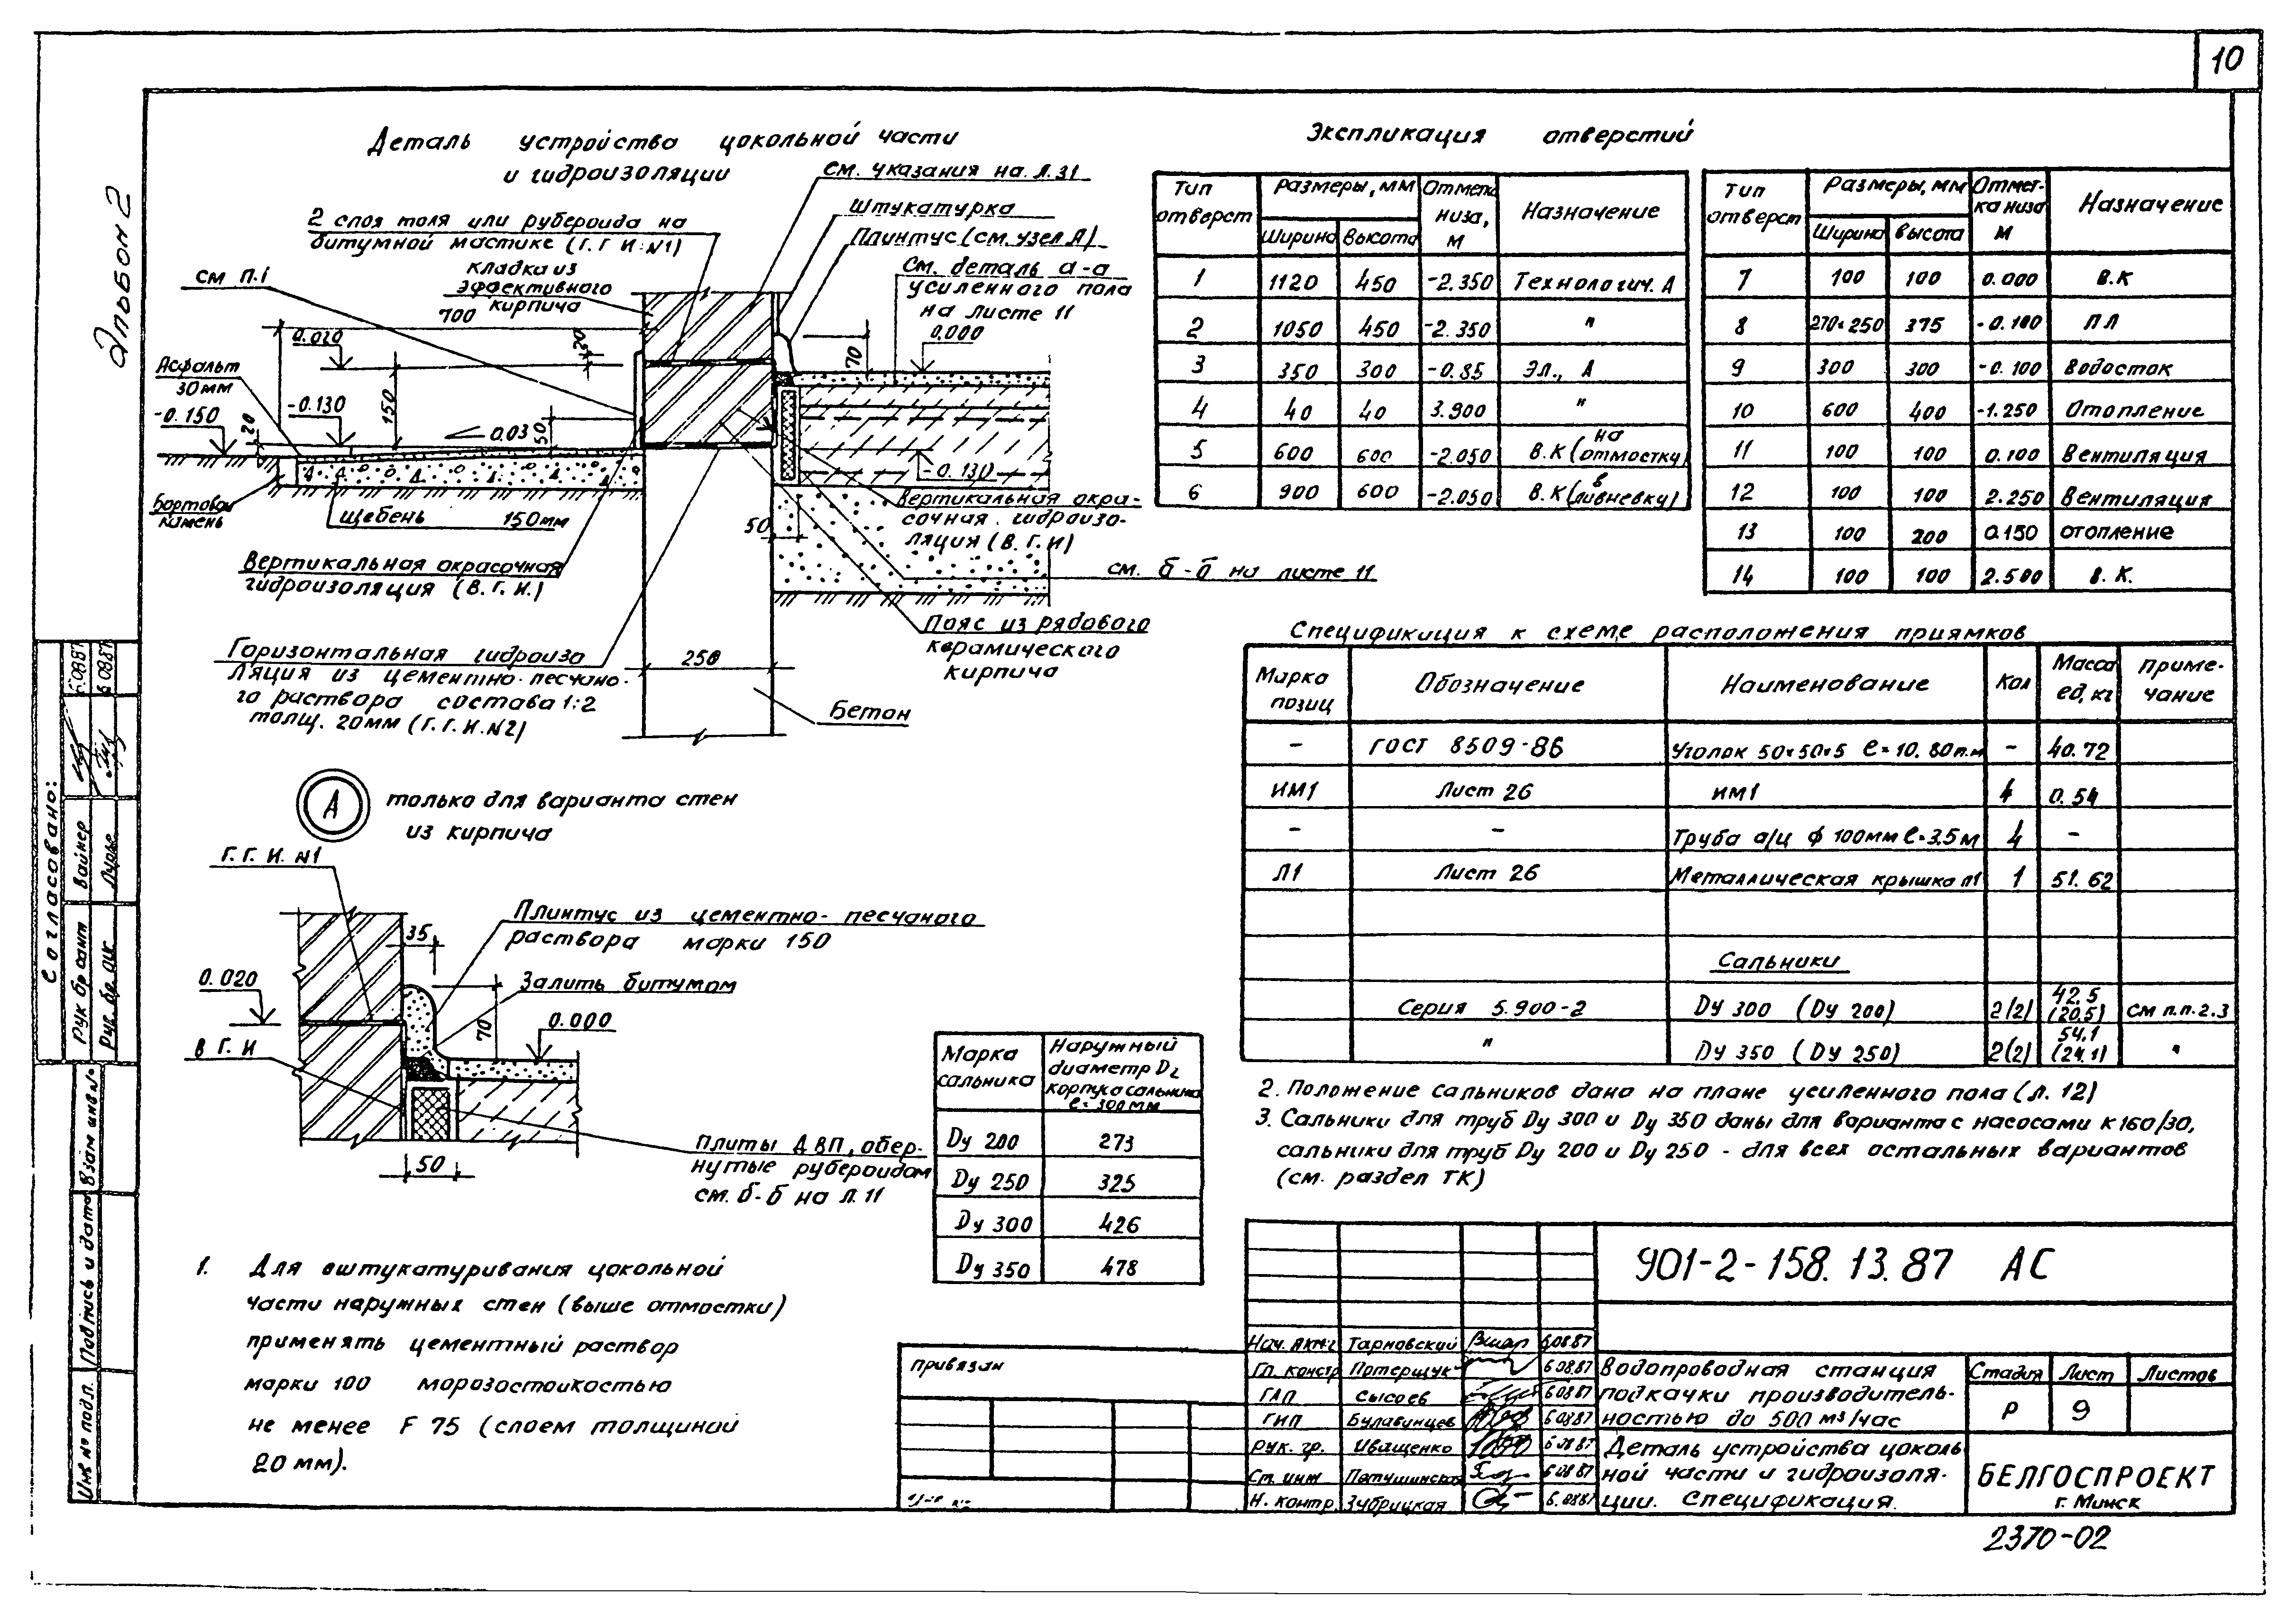 10
Альбом 2
Деталь устройства цокольной части
и гидроизоляции
См. указания на л.31
Штукатурка
Плинтус (см. узел А)
См. деталь а-а
усиленного пола
на листе 11
2 слоя толя или рубероида на
битумной мастике (Г.Г.И. №1)
кладка из
эффективного
кирпича
см п.1
700
0.020
20
0.000
70
Асфальт
30мм
-0.150
20
-0.130
150
0.03
50
-0.130
Бортовой
камень
Щебень 150мм
Вертикальная окрасочная
гидроизоляция (В.Г.И.)
Вертикальная окра-
сочная гидроизо-
ляция (В.Г.И)
50
см. б-б на листе 11
Пояс из рядового
керамического
кирпича
Горизонтальная гидроизо
ляция из цементно-песчано-
го раствора состава 1:2
толщ. 20мм (Г.Г.И.№2)
250
Бетон
А
только для варианта стен
из кирпича
Г.Г.И. №1
35
Плинтус из цементно-песчаного
раствора марки 150
Залить битумом
0.020
70
0.000
В Г. И
50
Плиты ДВП, обер-
нутые рубероидом
см. б-б на л. 11
1. Для оштукатуривания цокольной
части наружных стен (выше отмостки)
применять цементный раствор
марки 100 морозостойкостью
не менее F 75 (слоем толщиной
20 мм).
Марка сальника
Наружный диаметр D2 корпуса сальника ℓ=300мм
Dу 200 273
Dу 250 325
Dу 300 426
Dу 350 478
Экспликация отверстий
Тип отверст Размеры, мм Ширина Высота Отметка низа, м Назначение
1 1120 450 -2.350 Технологич. А
2 1050 450 -2.350 "
3 350 300 -0.85 Эл., А
4 40 40 3.900 "
5 600 600 -2.050 В.К (на отмостку)
6 900 600 -2.050 В.К (в ливневку)
Тип отверст Размеры, мм Ширина высота Отмет-ка низа м Назначение
7 100 100 0.000 В.К
8 270×250 375 -0.100 ПЛ
9 300 300 -0.100 Водосток
10 600 400 -1.250 Отопление
11 100 100 0.100 Вентиляция
12 100 100 2.250 Вентиляция
13 100 200 0.150 отопление
14 100 100 2.500 В. К.
Спецификиция к схеме расположения приямков
Марка позиц Обозначение Наименование Кол Масса ед, кг Приме-чание
- ГОСТ 8509-86 Уголок 50×50×5 ℓ=10.80п.м - 40.72
ИМ1 Лист 26 ИМ1 4 0.54
- - Труба а/ц ф 100мм ℓ=3.5м 4 -
Л1 Лист 26 Металлическая крышка л1 1 51.62
Сальники
Серия 5.900-2 Dу 300 (Dу 200) 2(2) 42.5 (20.5) См п.п.2.3
" Dу 350 (Dу 250) 2(2) 54.1 (24.1) "
2. Положение сальников дано на плане усиленного пола (л. 12)
3. Сальники для труб Dу 300 и Dу 350 даны для варианта с насосами К 160/30,
сальники для труб Dу 200 и Dу 250 - для всех остальных вариантов
(см. раздел ТК)
901-2-158.13.87 АС
Нач. Тарновский 6.08.87
Гл. констр Потерщук 6.08.87
ГАП Сысоев 6.08.87
ГИП Булавинцев 6.08.87
Рук. гр. Иващенко 6.08.87
Ст. инж 6.08.87
Н. контр. Зубрицкая 6.08.87
Водопроводная станция
подкачки производитель-
ностью до 500 м³/час
Стадия Лист Листов
Р 9
Деталь устройства цоколь
ной части и гидроизоля-
ции. Спецификация.
БЕЛГОСПРОЕКТ
г. Минск
привязан
2370-02
Согласовано:
Рук бр сант Вайнер
Рук. бр. Лурье
Взам инв №
Подпись и дата
Инв № подл.